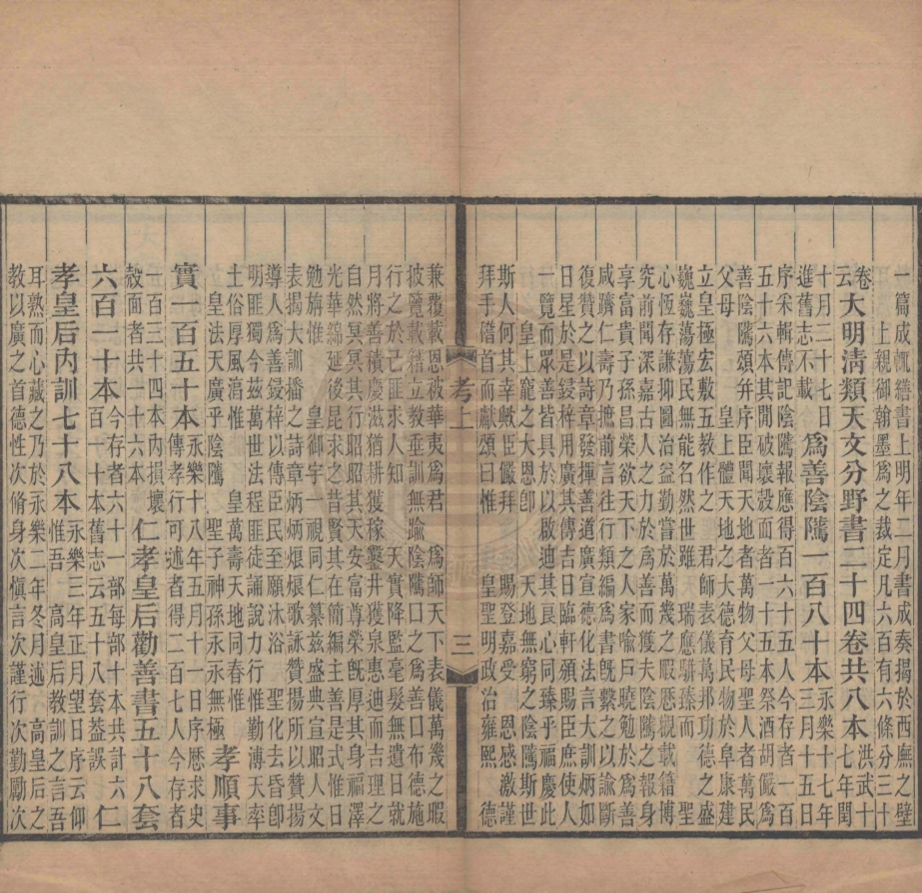 一篇成輒繕書上明年二月書成奏揭於西廡之壁
上親御翰墨爲之裁定凡六百有六條分三十
卷云大明清類天文分野書二十四卷共八本洪武十七年閏
十月二十七日進舊志不載爲善陰隲一百八十本永樂十七年三月十五日
序采輯傳記陰隲報應得百六十五人今存者一百
五十六本其閒破壞殼面者一十五本祭酒胡儼爲
善陰隲頌并序臣聞天地者萬物父母聖人者萬民
父母 皇上體天地之大德育民物於阜康建
立皇極宏敷五教作之 君師表儀萬邦功德之盛
巍巍蕩蕩民無能名然世雖 瑞應駢臻而 聖
心恆存謙抑圖治益勤嘗於萬幾之暇歷觀載籍博
究前聞深嘉古人之力於爲善而獲夫陰隲之報身
享富貴子孫昌榮欲天下之人家喻戶曉勉於爲善
咸躋仁壽乃摭前言往行類編爲書旣繫之以論斷
復贊之以詩章發揮善道廣宣德化法言大訓炳如
日星於是鋟梓用廣其傳吉日臨軒頒賜臣庶使人人
一覽而眾善皆具於以啟迪其良心同臻乎福慶此
皇上寵之大恩卽 天地無窮之陰隲斯世
斯人何其幸歟臣儼拜 賜登嘉受 恩感激謹
拜手稽首而獻頌曰惟 皇聖明政治雍熙 德
考上 三
兼覆載恩被華夷爲君 爲師天下表儀萬幾之暇
彼覽載籍立教垂訓無踰陰隲口善無口布德施
行之於己匪求人知 天實降監毫髮無遺日就
月將善積慶滋猶耕獲稼鑿井獲泉惠迪而吉理之
自然冥冥其行昭昭其天安富尊榮旣厚其身福澤
光華綿延後昆求之昔賢其在簡編主善是式惟日
勉旃惟 皇御宇一視同仁纂茲盛典宣昭人文
表揭大訓播之詩章炳炳煥煥歌詠贊揚所以贊揚
導人爲善鋟梓以傳臣民至願沐浴 聖化去昏卽
明匪獨今茲萬世法程匪徒誦說力行惟勤溥天率
土俗厚風淳惟 皇萬壽天地同春惟
皇法天廣乎陰隲 聖子神孫永永無極孝順事
實一百五十本永樂十八年五月十一日序歷求史傳孝行可述者得二百七人今存者
一百三十四本內損壞殼面者共一十六本仁孝皇后勸善書五十八套
六百一十本今存者六十一部每部十本共計六百一十本舊志云五十八套葢誤仁
孝皇后內訓七十八本永樂三年正月望日序云仰惟吾 高皇后教訓之言
耳熟而心藏之乃於永樂二年冬月述 高皇后之
教以廣之首德性次脩身次愼言次謹行次勤勵次